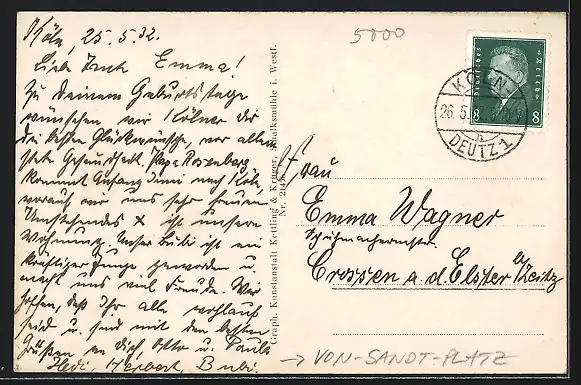 Köln, 25.5.32.
Liebe Tante Emma!
Zu Deinem Geburtstage
wünschen wir Kölner dir
die besten Glückwünsche, vor allem
stete Gesundheit. Papa Rosenberg
kommt Anfang Juni nach Köln,
worauf wir uns sehr freuen.
Umstehendes X ist unsere
Wohnung. Unser Bubi ist ein
kräftiger Junge geworden u.
macht uns viel Freude. Wir
hoffen, daß Ihr alle wohlauf
seid u. sind mit den besten
Grüßen an dich Otto u. Paula
Hedi, Herbert, Bubi.
Graph. Kunstanstalt Kettling & Krüger, Schalksmühle i. Westf.
Nr. 21
5000
Deutsches Reich
8 8
KÖLN
26.5.
DEUTZ 1
Frau
Emma Wagner
Schuhmachermstr.
Crossen a. d. Elster b/Zeitz
→ VON-SANDT-PLATZ